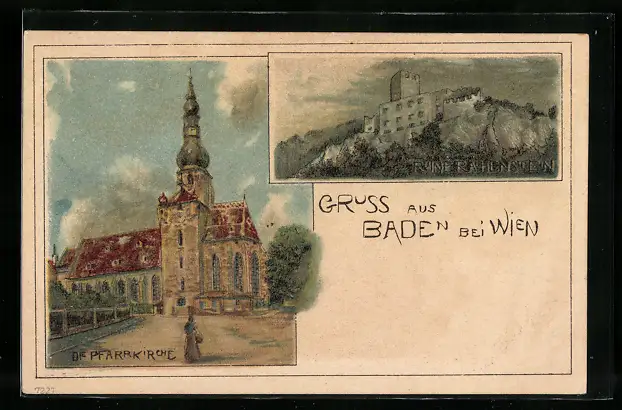 RUINE RAUHENSTEIN
GRUSS AUS
BADEN BEI WIEN
DIE PFARRKIRCHE